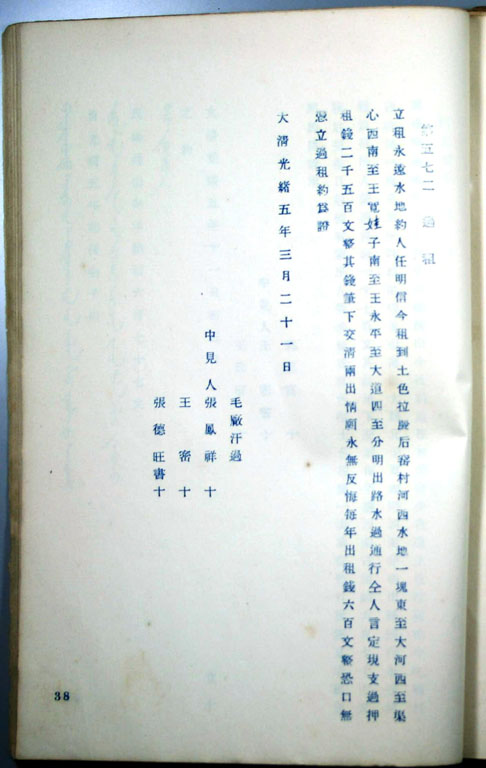 第五七二 過租
立租永遠水地約人任明信今租到土色拉嚴后窰村河西水地一塊東至大河西至渠
心西南至王寬娃子南至王永平至大道四至分明出路水過通行仝人言定現支過押
租錢二千五百文整其錢筆下交清兩出情願永無反悔每年出租錢六百文整恐口無
慿立過租約爲證
大清光緒五年三月二十一日
毛廠汗過
中見人張鳳祥十
王密十
張德旺書十
38